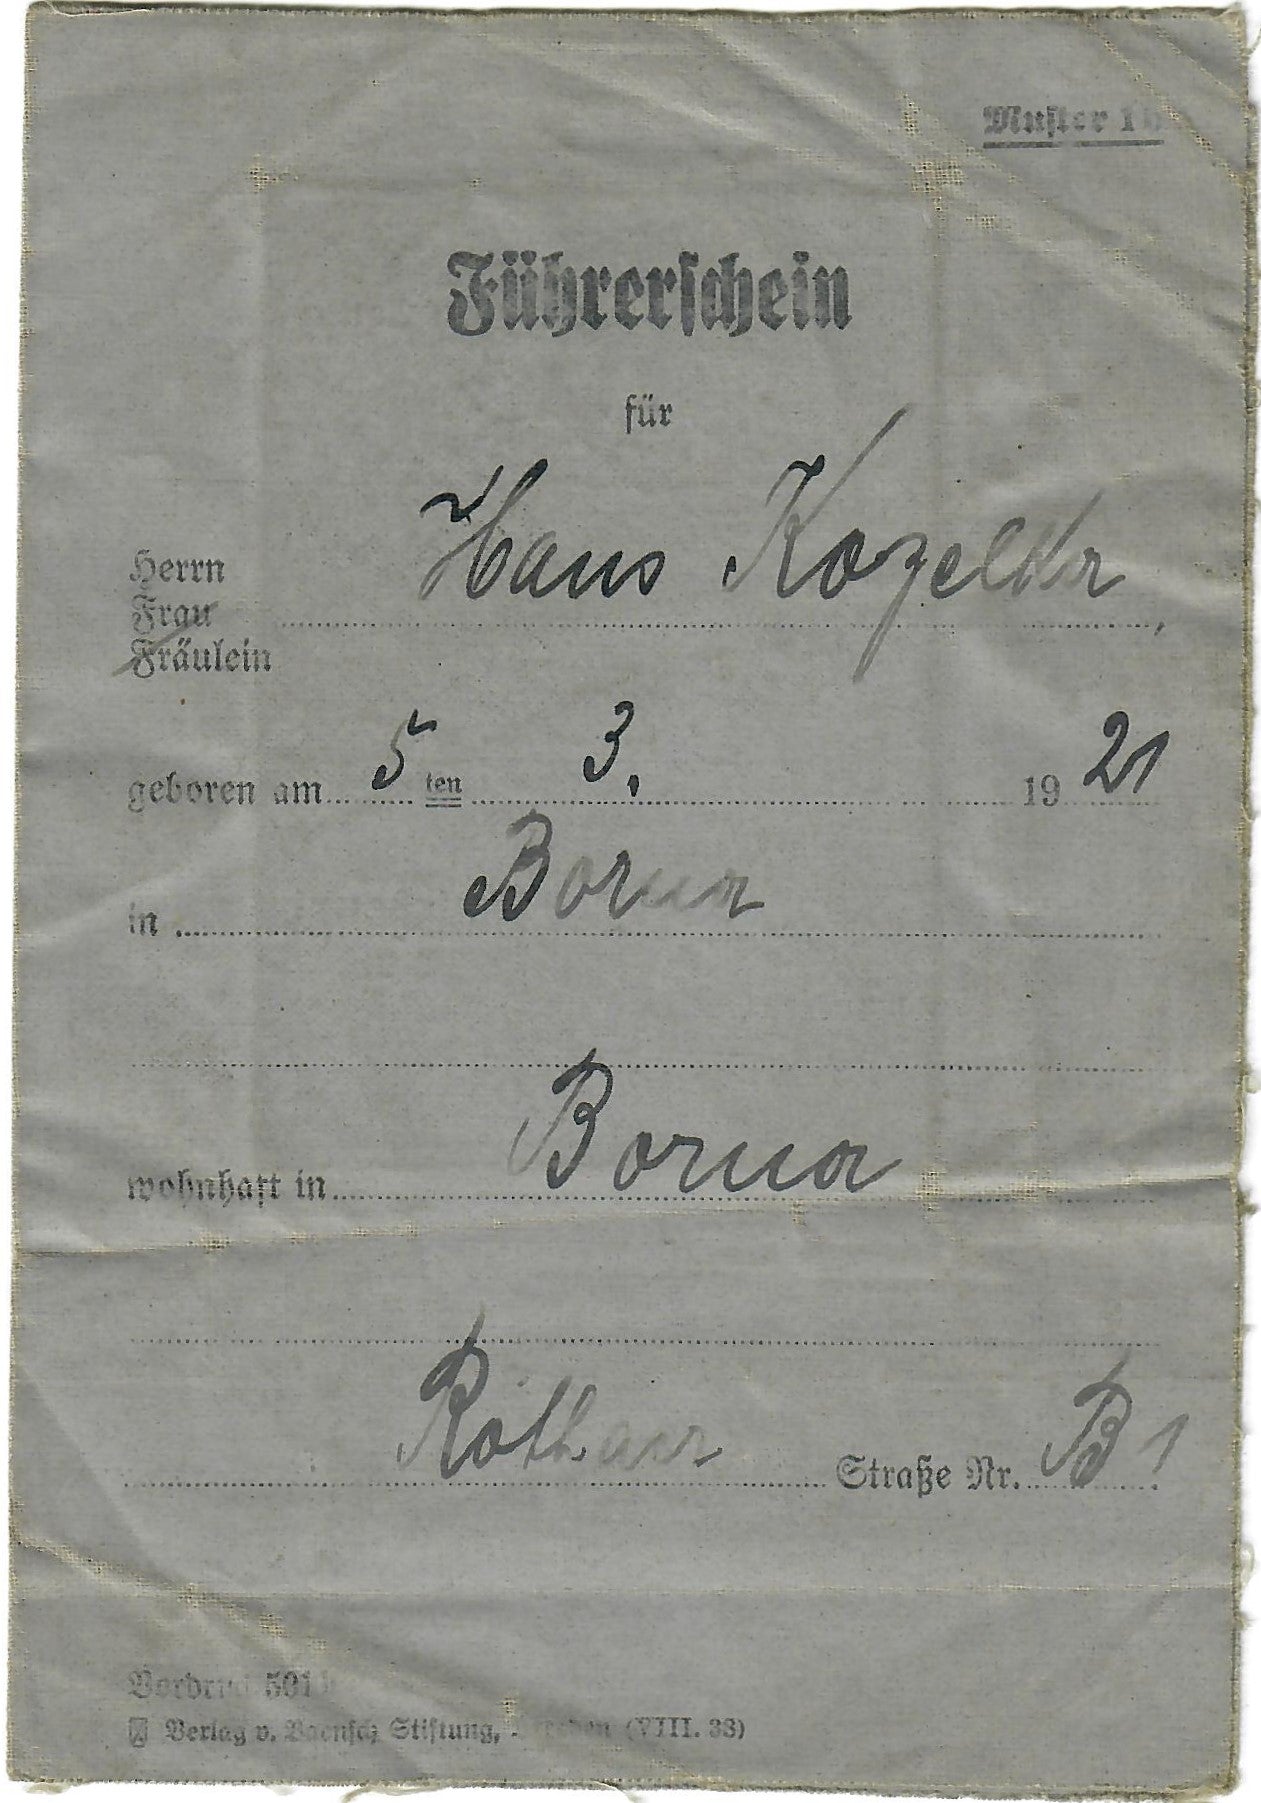 Muster 1b
Führerschein
für
Herrn
Frau
Fräulein
Hans Kozelka,
geboren am 5ten 3. 1921
in Borna
wohnhaft in Borna
Röthaer Straße Nr. B 1
Vordruck 501
Verlag v. Baensch Stiftung, Dresden (VIII. 38)